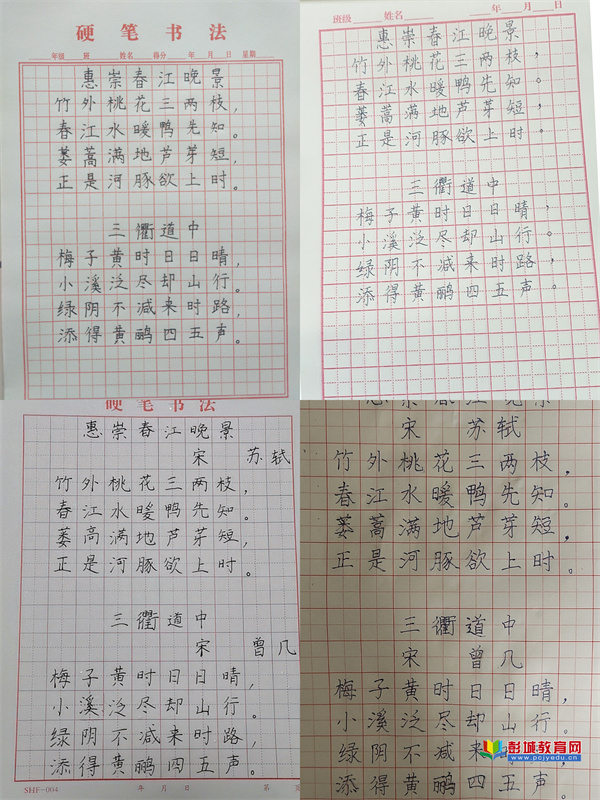 硬笔书法
年级 班 姓名 得分 年 月 日 星期
惠崇春江晚景
竹外桃花三两枝，
春江水暖鸭先知。
蒌蒿满地芦芽短，
正是河豚欲上时。
三衢道中
梅子黄时日日晴，
小溪泛尽却山行。
绿阴不减来时路，
添得黄鹂四五声。
班级 姓名 年 月 日
惠崇春江晚景
竹外桃花三两枝，
春江水暖鸭先知。
蒌蒿满地芦芽短，
正是河豚欲上时。
三衢道中
梅子黄时日日晴，
小溪泛尽却山行。
绿阴不减来时路，
添得黄鹂四五声。
硬笔书法
惠崇春江晚景
宋 苏轼
竹外桃花三两枝，
春江水暖鸭先知。
蒌高满地芦芽短，
正是河豚欲上时。
三衢道中
宋 曾几
梅子黄时日日晴，
小溪泛尽却山行。
绿阴不减来时路，
添得黄鹂四五声。
SHF-004 年 月 日 第
宋 苏轼
竹外桃花三两枝，
春江水暖鸭先知。
蒌蒿满地芦芽短，
正是河豚欲上时。
三衢道中
宋 曾几
梅子黄时日日晴，
小溪泛尽却山行。
绿阴不减来
添得黄鹂四五声。
彭城教育网
www.pcjyedu.cn